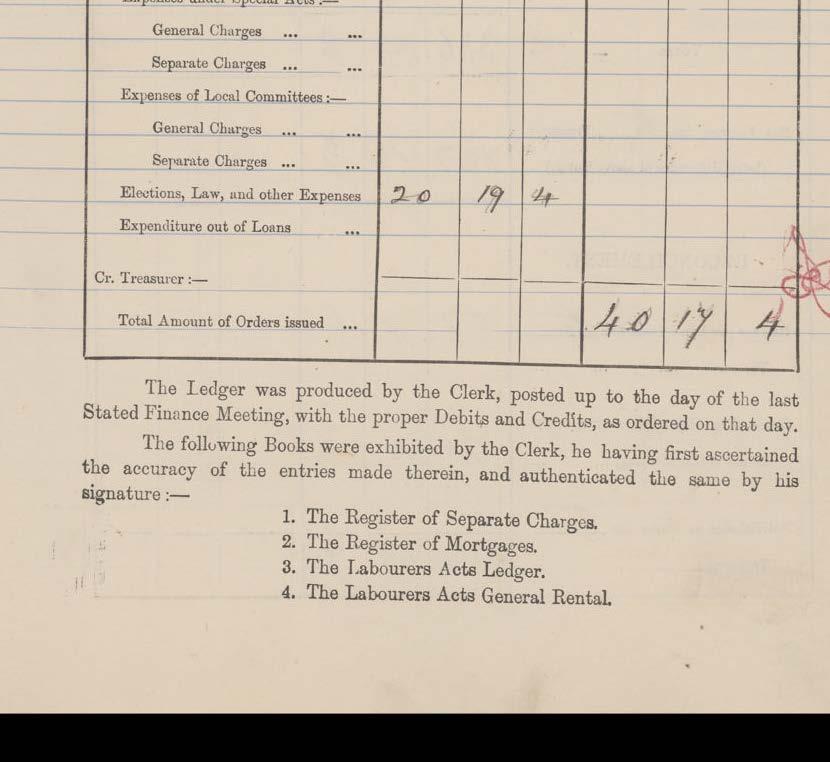 General Charges ... ...
Separate Charges ... ...
Expenses of Local Committees :—
General Charges ... ...
Separate Charges ... ...
Elections, Law, and other Expenses 20 19 4
Expenditure out of Loans ...
Cr. Treasurer :—
Total Amount of Orders issued ... 40 17 4
The Ledger was produced by the Clerk, posted up to the day of the last
Stated Finance Meeting, with the proper Debits and Credits, as ordered on that day.
The following Books were exhibited by the Clerk, he having first ascertained
the accuracy of the entries made therein, and authenticated the same by his
signature :—
1. The Register of Separate Charges.
2. The Register of Mortgages.
3. The Labourers Acts Ledger.
4. The Labourers Acts General Rental.